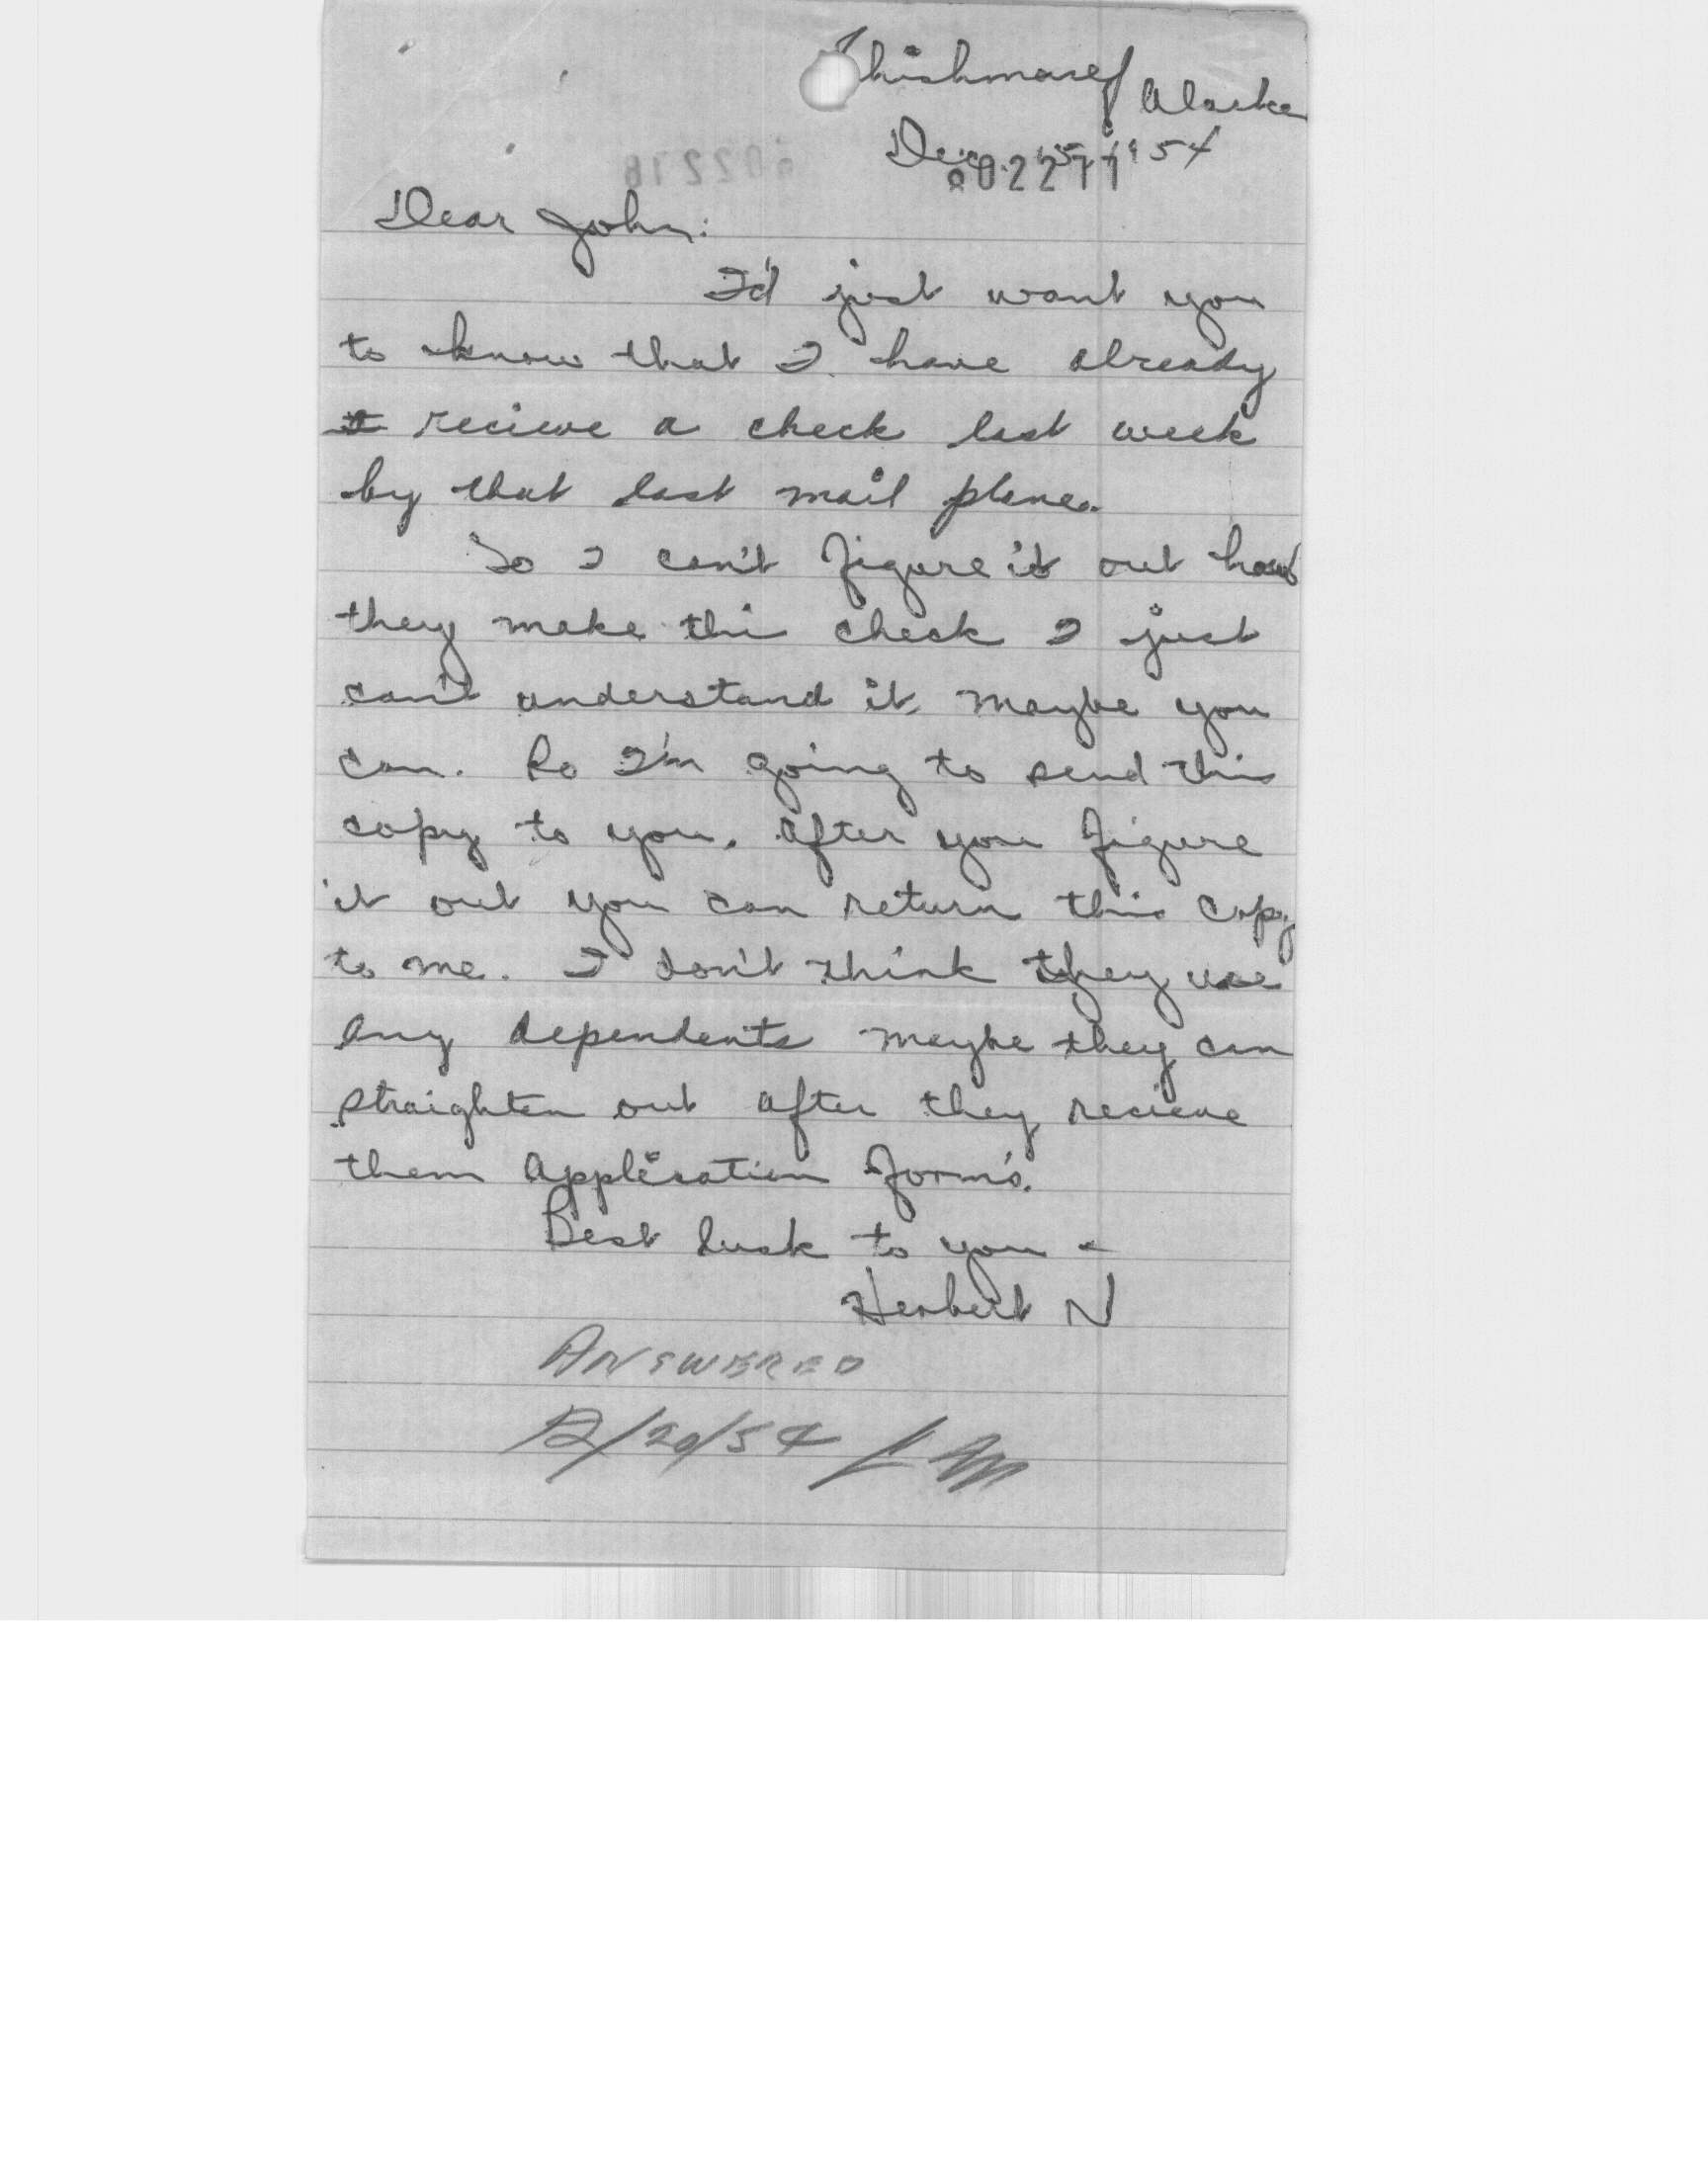 Shishmaref Alaska
Dec. 15, 1954
002277
Dear John:
I'd just want you
to know that I have already
recieve a check last week
by that last mail plane.
So I can't figure it out how
they make this check I just
can't understand it, maybe you
can. So I'm going to send this
copy to you. After you figure
it out you can return this copy
to me. I don't think they use
any dependents maybe they can
straighten out after they recieve
them Application Form's.
Best luck to you -
Herbert N
ANSWERED
12/20/54